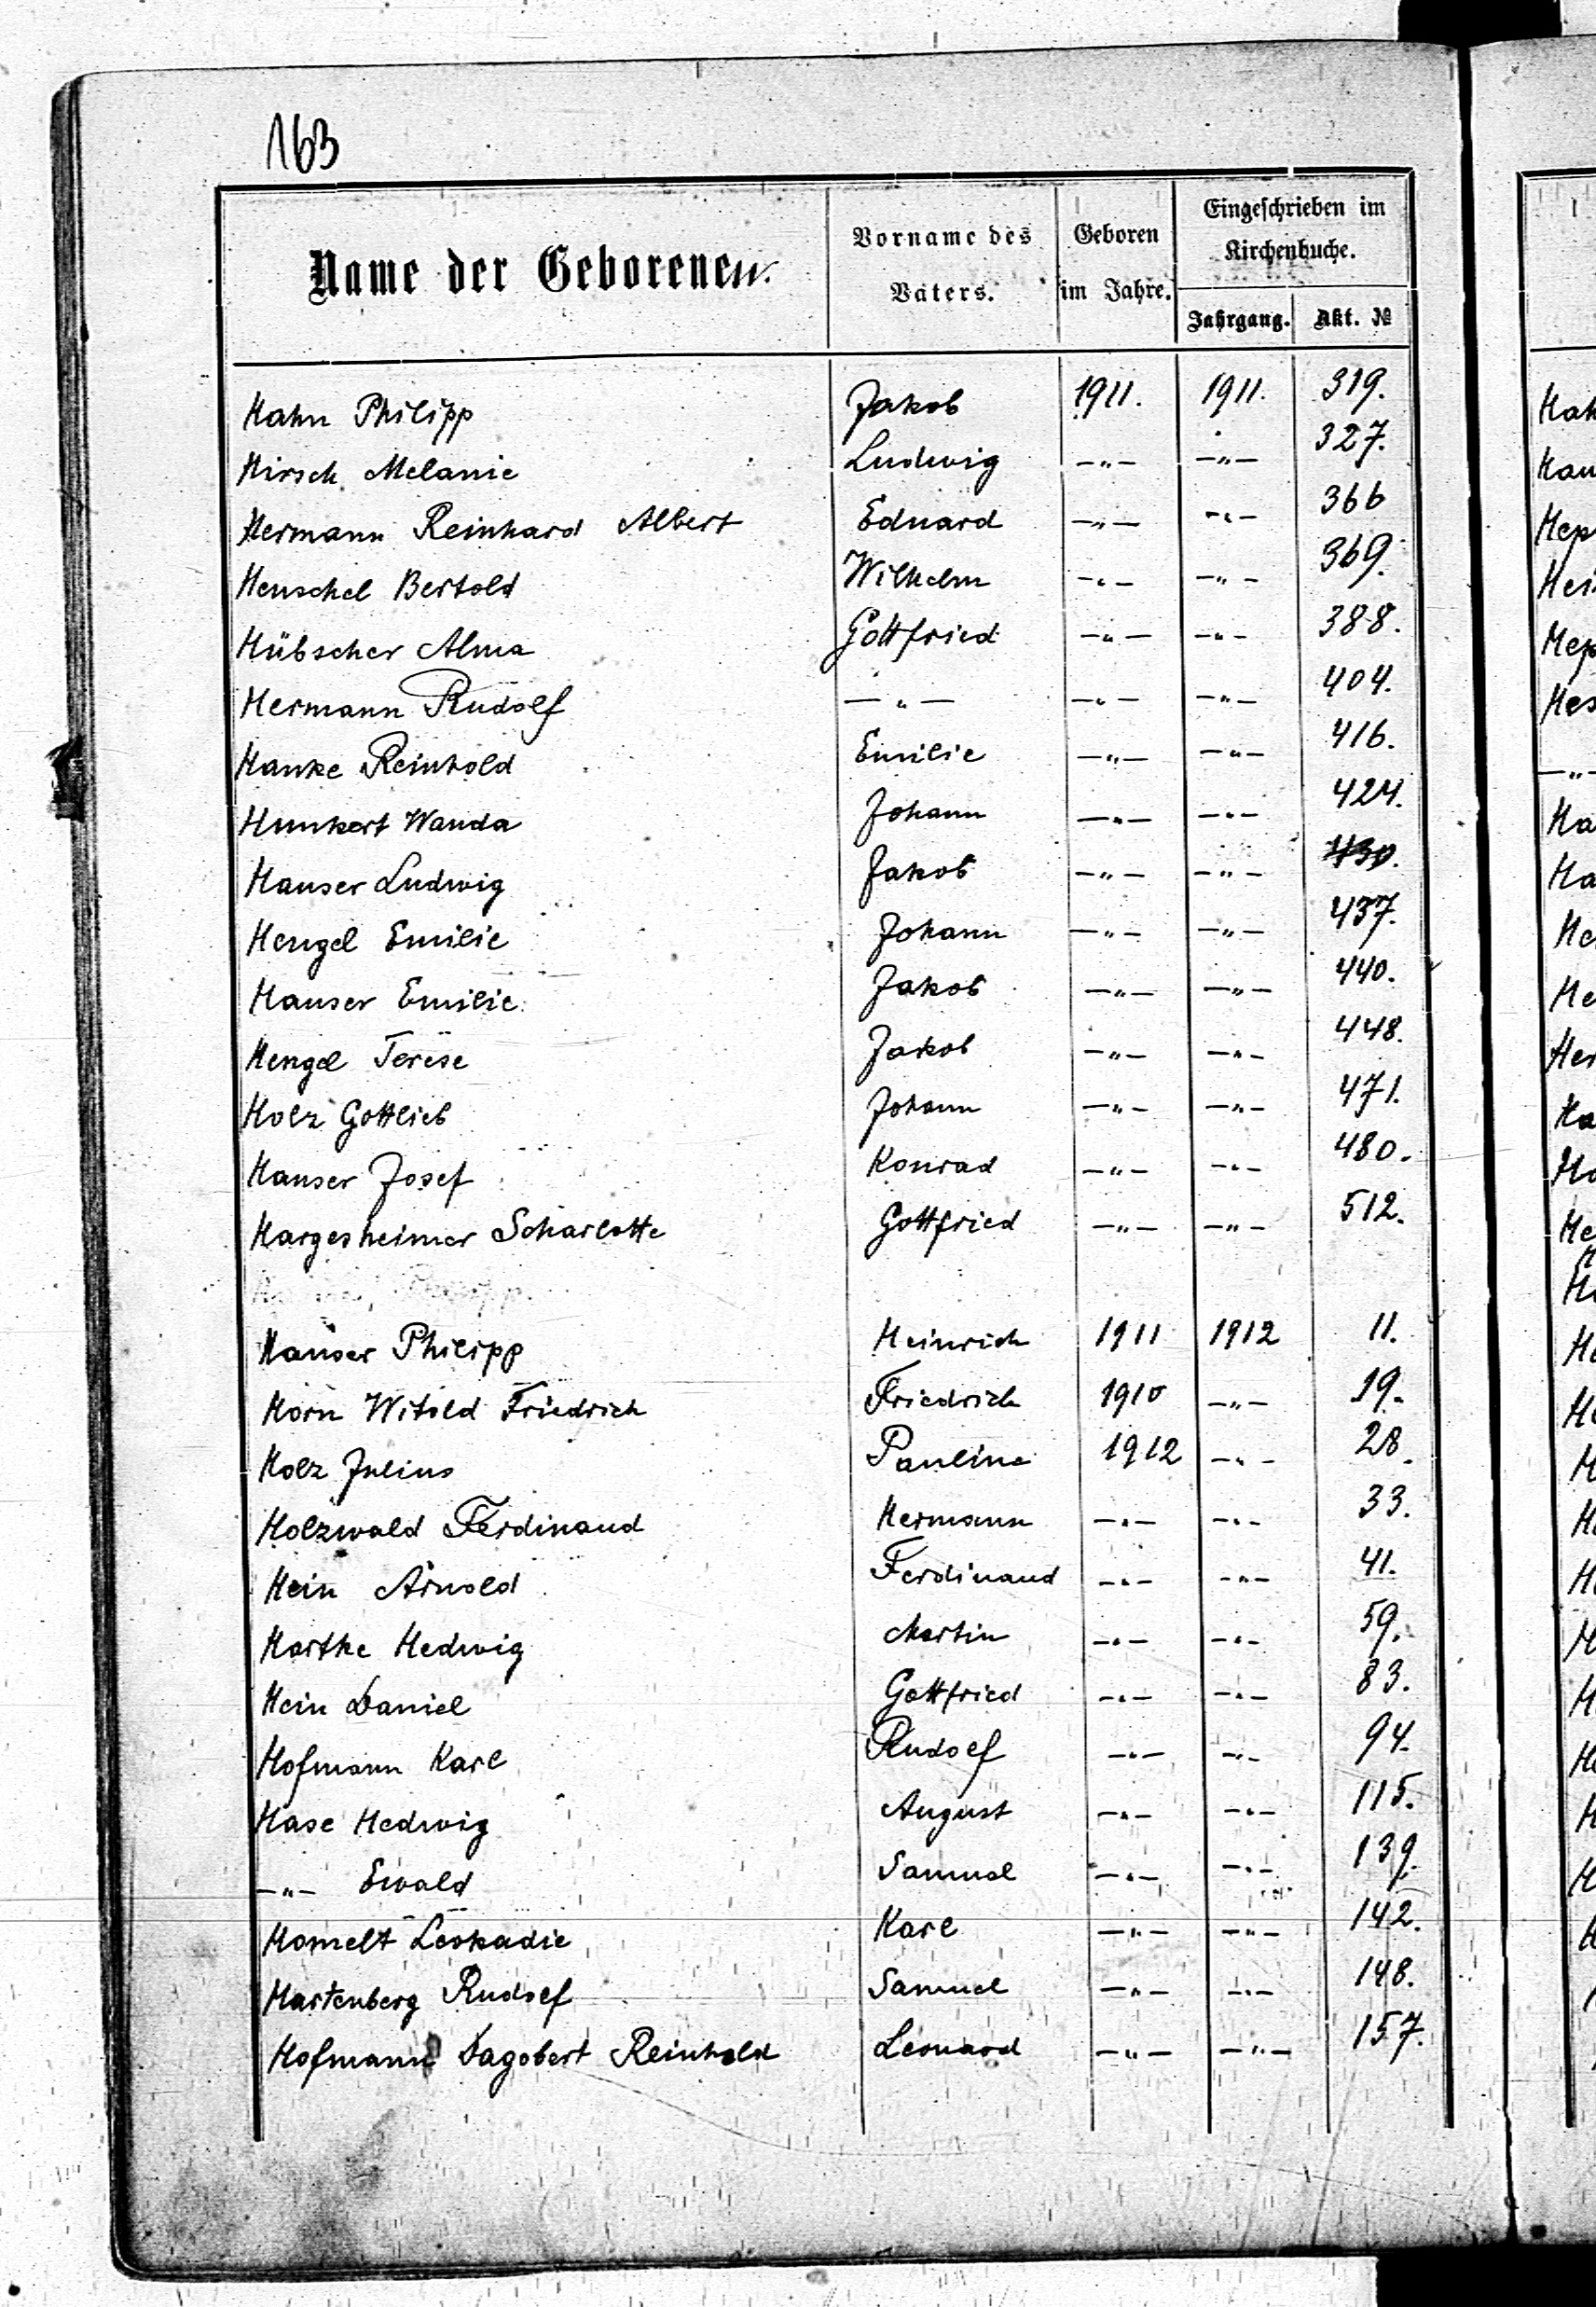 163
Name der Geborenen.
Vorname des Vaters.
Geboren im Jahre.
Eingeschrieben im Kirchenbuche.
Jahrgang. Akt. №
Hahn Philipp Jakob 1911. 1911. 319.
Hirsch Melanie Ludwig —"— —"— 327.
Hermann Reinhard Albert Eduard —"— —"— 366
Henschel Bertold Wilhelm —"— —"— 369.
Hübscher Alma Gottfried —"— —"— 388.
Hermann Rudolf —"— —"— —"— 404.
Hanke Reinhold Emilie —"— —"— 416.
Hunkert Wanda Johann —"— —"— 424.
Hauser Ludwig Jakob —"— —"— 430.
Hengel Emilie Johann —"— —"— 437.
Hauser Emilie Jakob —"— —"— 440.
Hengel Terese Jakob —"— —"— 448.
Holz Gottlieb Johann —"— —"— 471.
Hauser Josef Konrad —"— —"— 480.
Hargesheimer Scharlotte Gottfried —"— —"— 512.
Hauser Philipp Heinrich 1911 1912 11.
Horn Witold Friedrich Friedrich 1910 —"— 19.
Holz Julius Pauline 1912 —"— 28.
Holzwald Ferdinand Hermann —"— —"— 33.
Hein Arnold Ferdinand —"— —"— 41.
Hartke Hedwig Martin —"— —"— 59.
Hein Daniel Gottfried —"— —"— 83.
Hofmann Karl Rudolf —"— —"— 94.
Hase Hedwig August —"— —"— 115.
—"— Ewald Samuel —"— —"— 139.
Homelt Leokadie Karl —"— —"— 142.
Hartenberg Rudolf Samuel —"— —"— 148.
Hofmann Dagobert Reinhold Leonard —"— —"— 157.